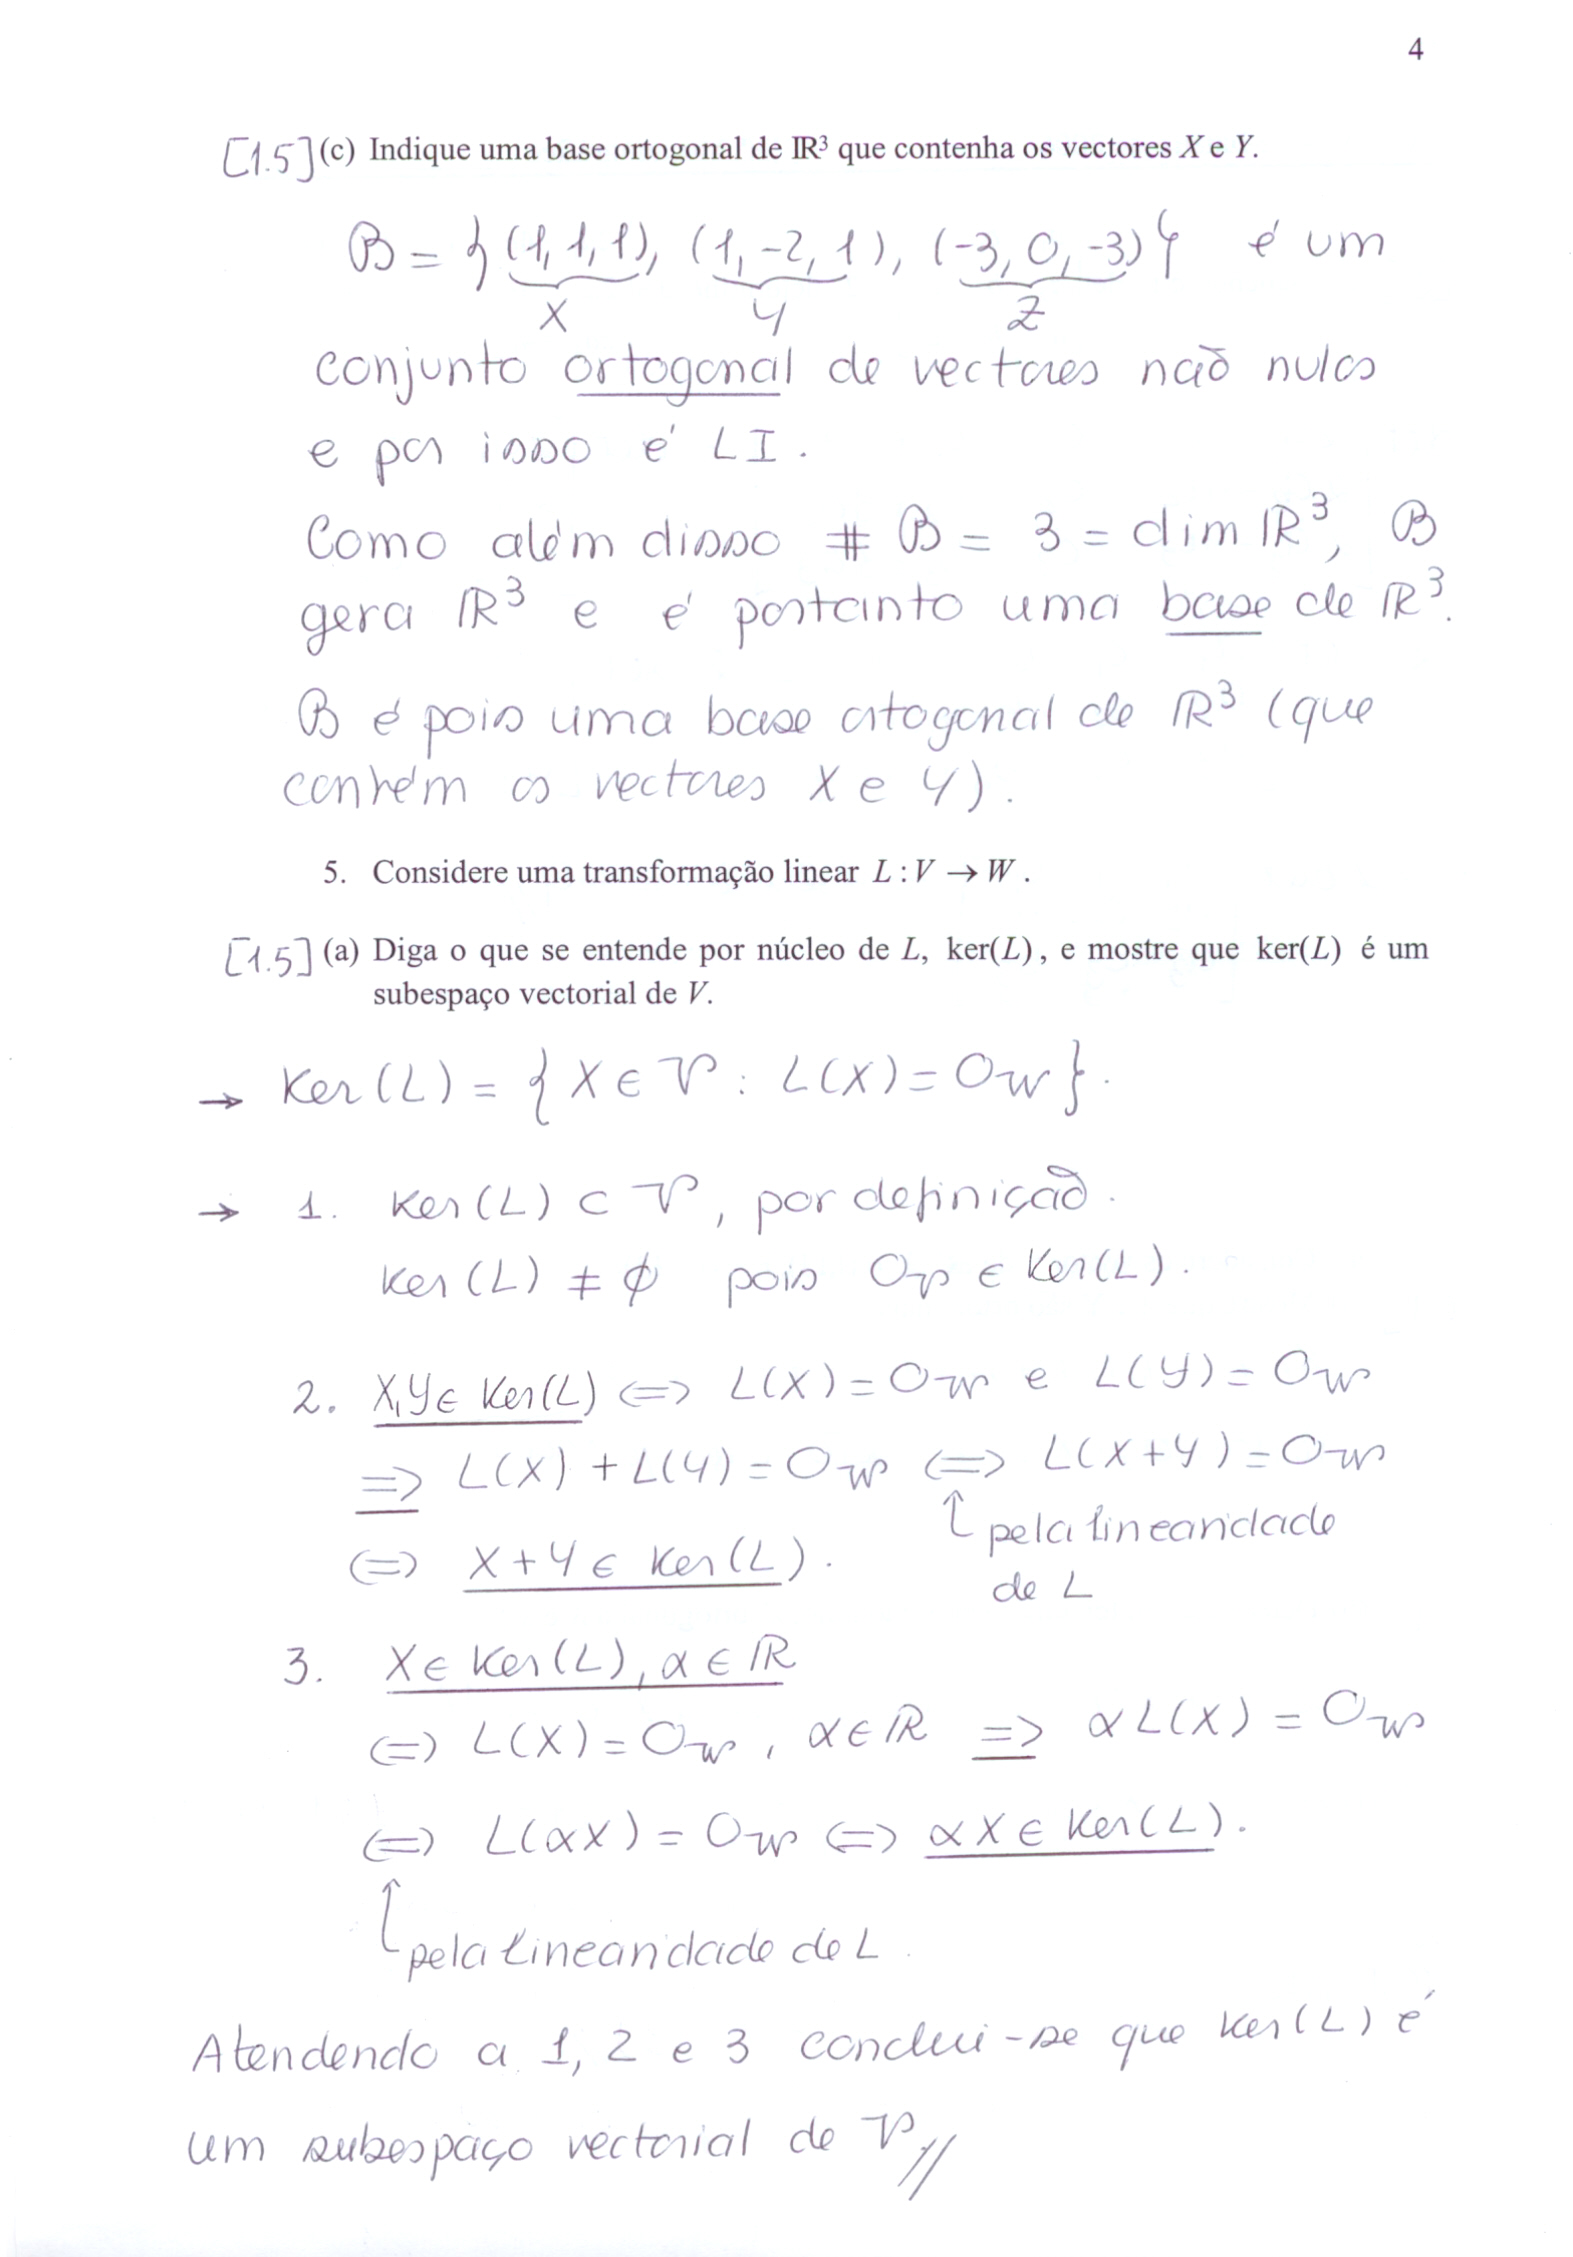 4
[1.5] (c) Indique uma base ortogonal de ℝ³ que contenha os vectores X e Y.
B = {(1, 1, 1), (1, -2, 1), (-3, 0, -3)} é um
X Y Z
conjunto ortogonal de vectores não nulos
e por isso é LI.
Como além disso # B = 3 = dim ℝ³, B
gera ℝ³ e é portanto uma base de ℝ³.
B é pois uma base ortogonal de ℝ³ (que
contém os vectores X e Y).
5. Considere uma transformação linear L : V → W .
[1.5] (a) Diga o que se entende por núcleo de L, ker(L), e mostre que ker(L) é um
subespaço vectorial de V.
→ Ker(L) = { X ∈ V : L(X) = 0w }.
→ 1. Ker(L) ⊂ V, por definição.
Ker(L) ≠ ϕ pois 0v ∈ Ker(L).
2. X, Y ∈ Ker(L) ⟺ L(X) = 0w e L(Y) = 0w
⟹ L(X) + L(Y) = 0w ⟺ L(X+Y) = 0w
↑ pela linearidade
de L
⟺ X + Y ∈ Ker(L).
3. X ∈ Ker(L), α ∈ ℝ
⟺ L(X) = 0w, α ∈ ℝ ⟹ α L(X) = 0w
⟺ L(αX) = 0w ⟺ αX ∈ Ker(L).
↑ pela linearidade de L.
Atendendo a 1, 2 e 3 conclui-se que Ker(L) é
um subespaço vectorial de V //